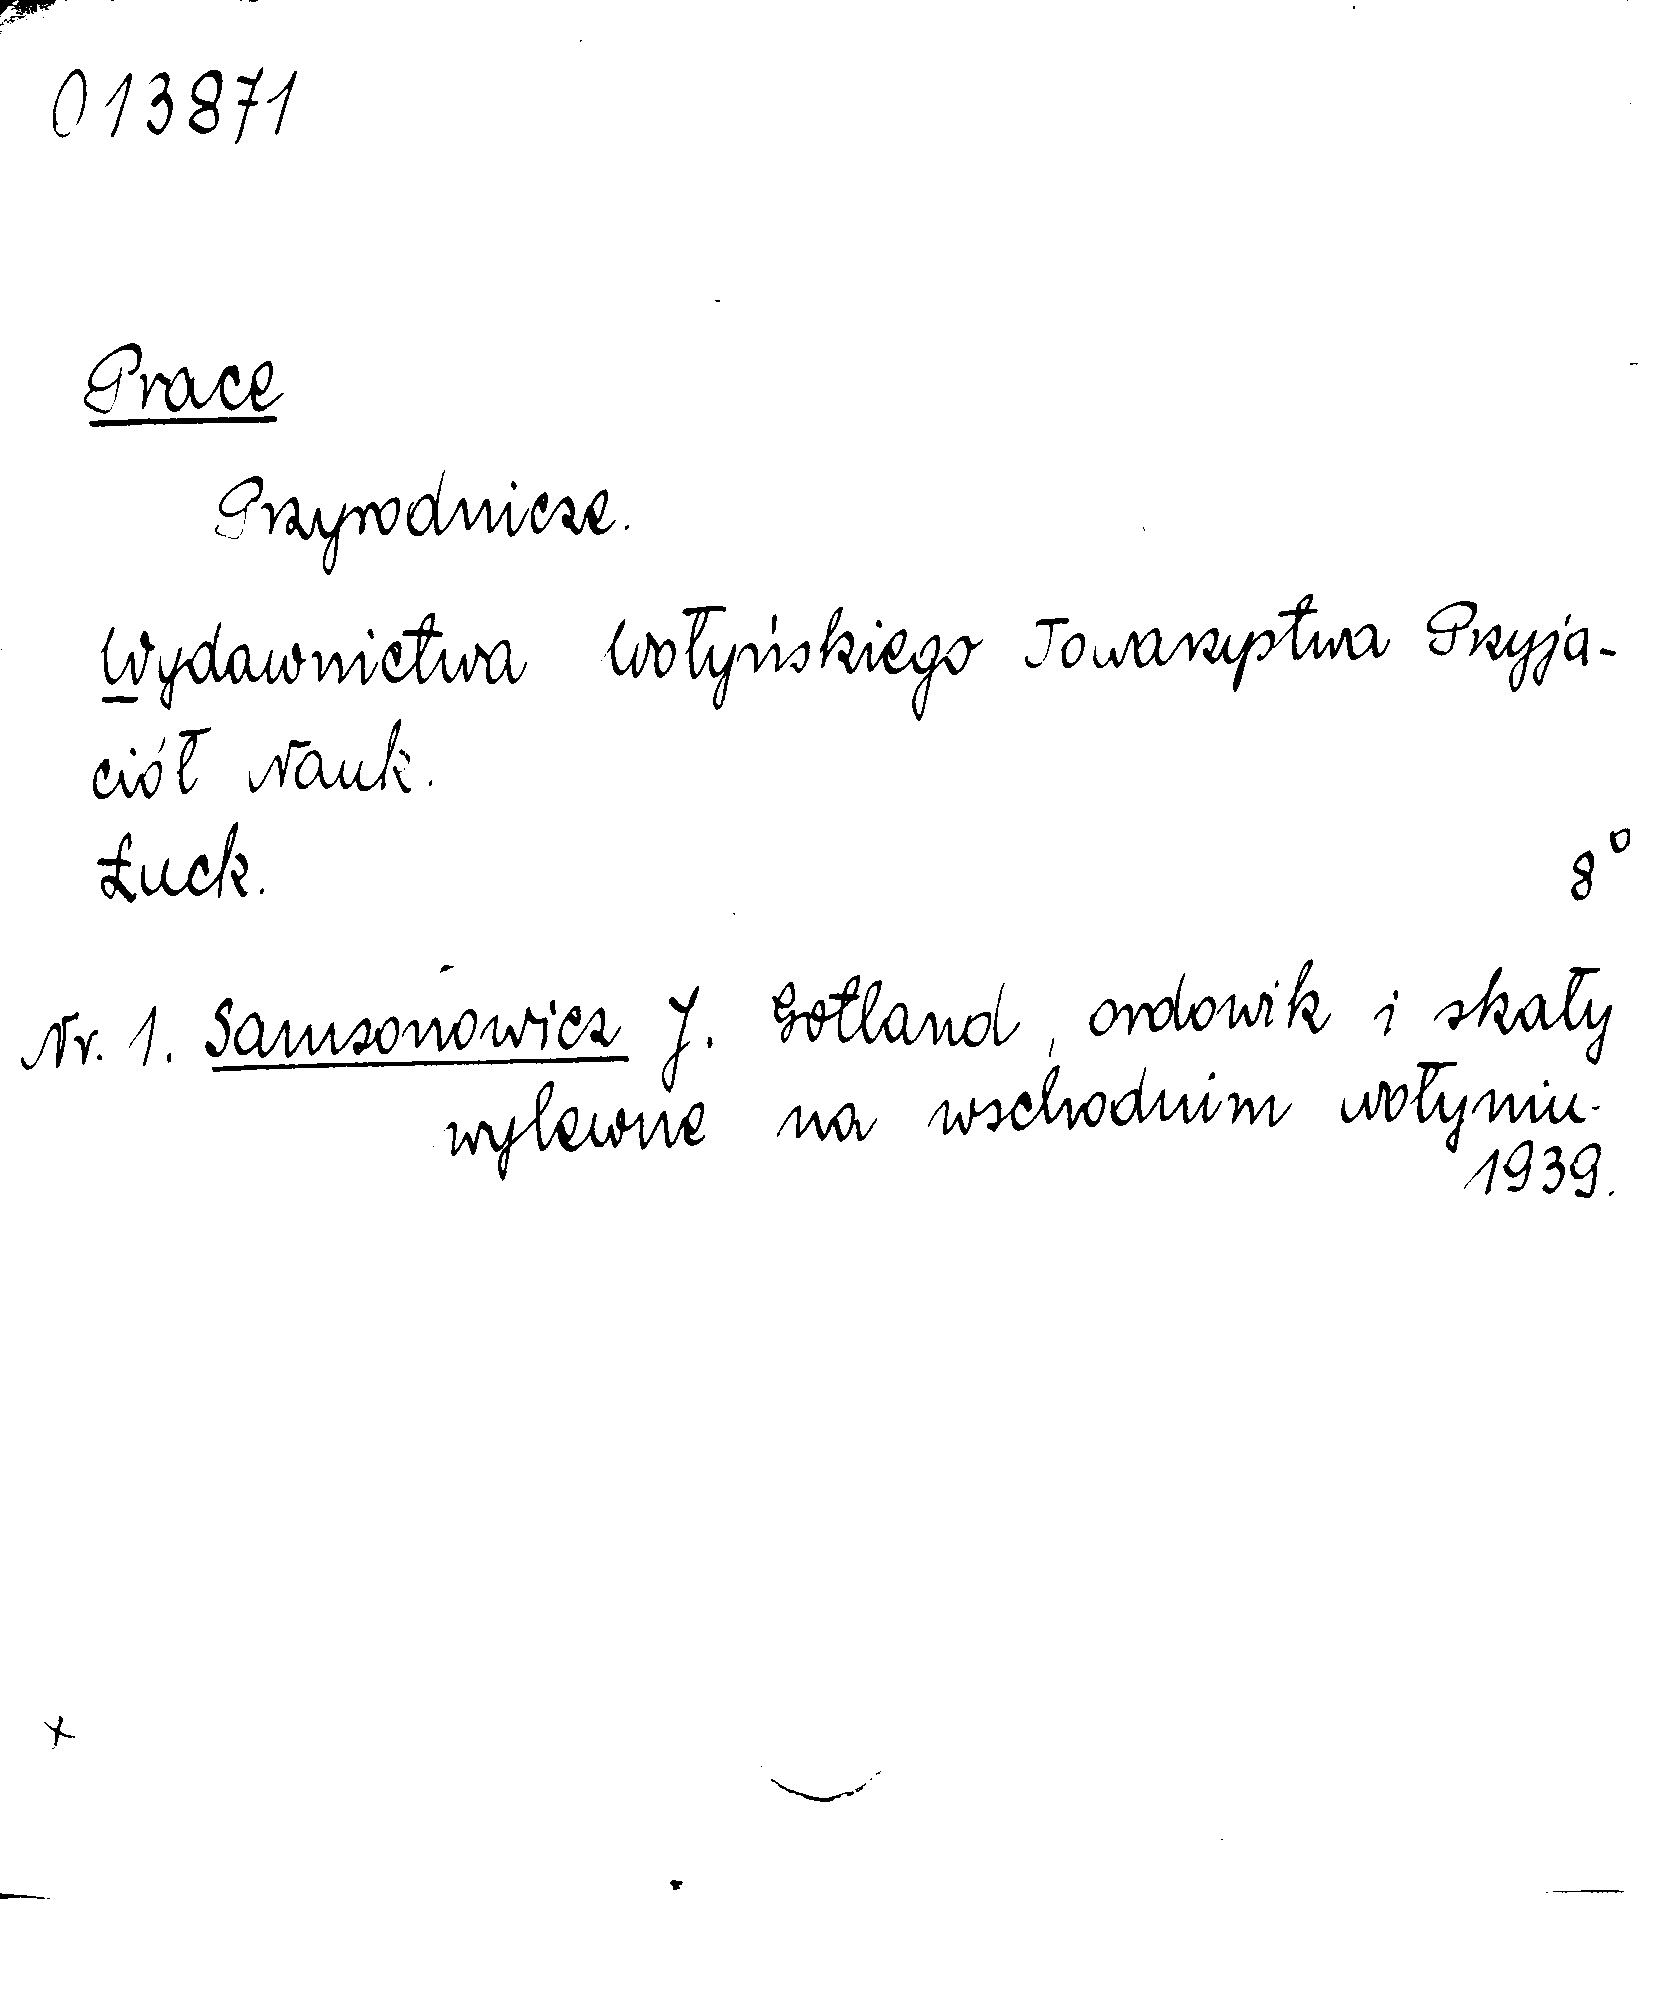 013871
Prace
Przyrodnicze.
Wydawnictwa Wołyńskiego Towarzystwa Przyja-
ciół Nauk.
Łuck.
8°
Nr. 1. Samsonowicz J. Gotland, ordowik i skały
wylewne na wschodnim Wołyniu.
1939.
x